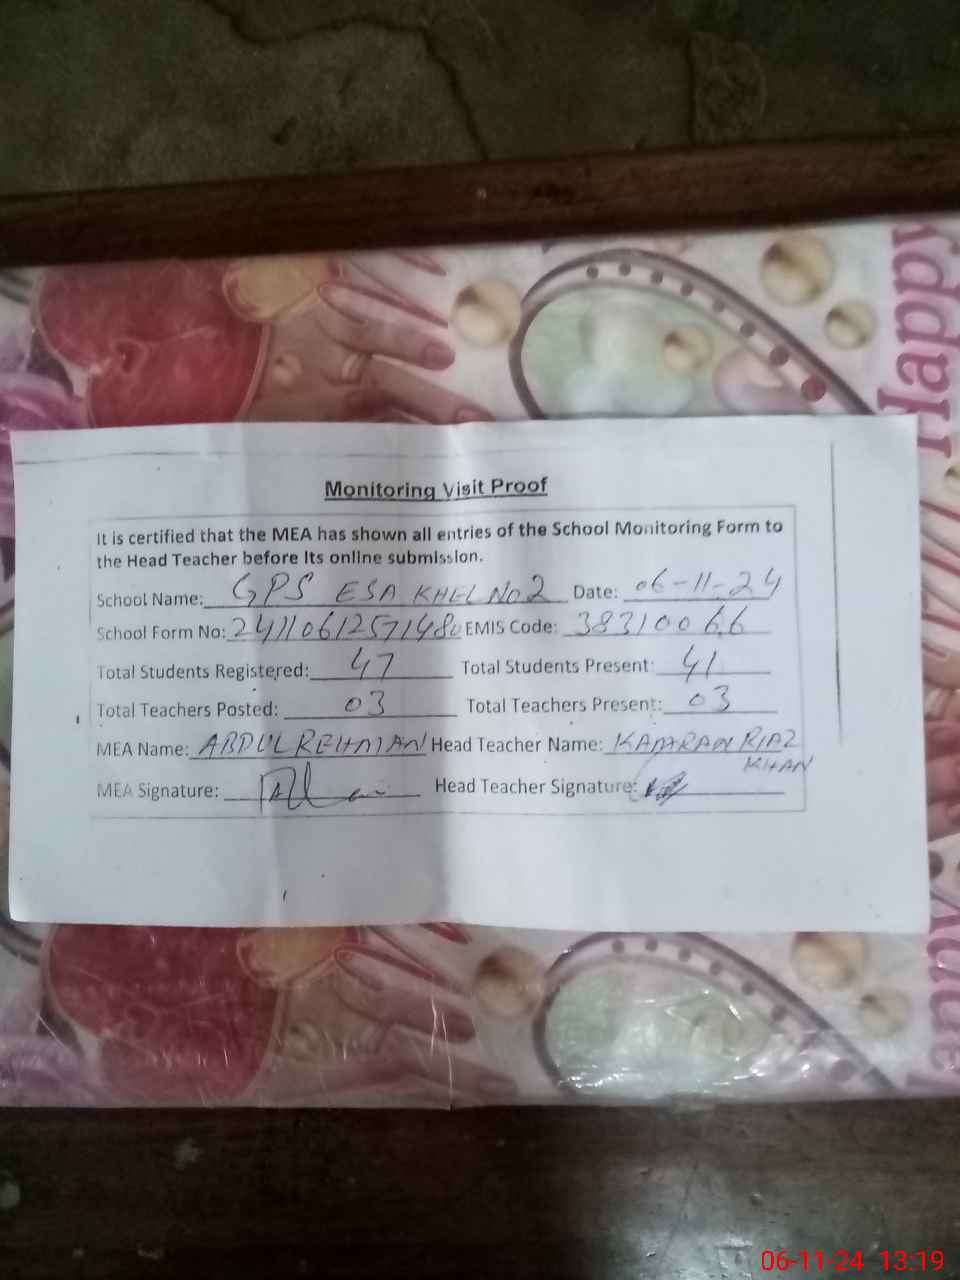 Happy
Monitoring Visit Proof
It is certified that the MEA has shown all entries of the School Monitoring Form to
the Head Teacher before its online submission.
School Name: GPS ESA KHEL No 2 Date: 06-11-24
School Form No: 24110612571480 EMIS Code: 38310066
Total Students Registered: 47 Total Students Present: 41
Total Teachers Posted: 03 Total Teachers Present: 03
MEA Name: ABDUL REHMAN Head Teacher Name: KAMRAN RIAZ
KHAN
MEA Signature: Head Teacher Signature:
06-11-24 13:19